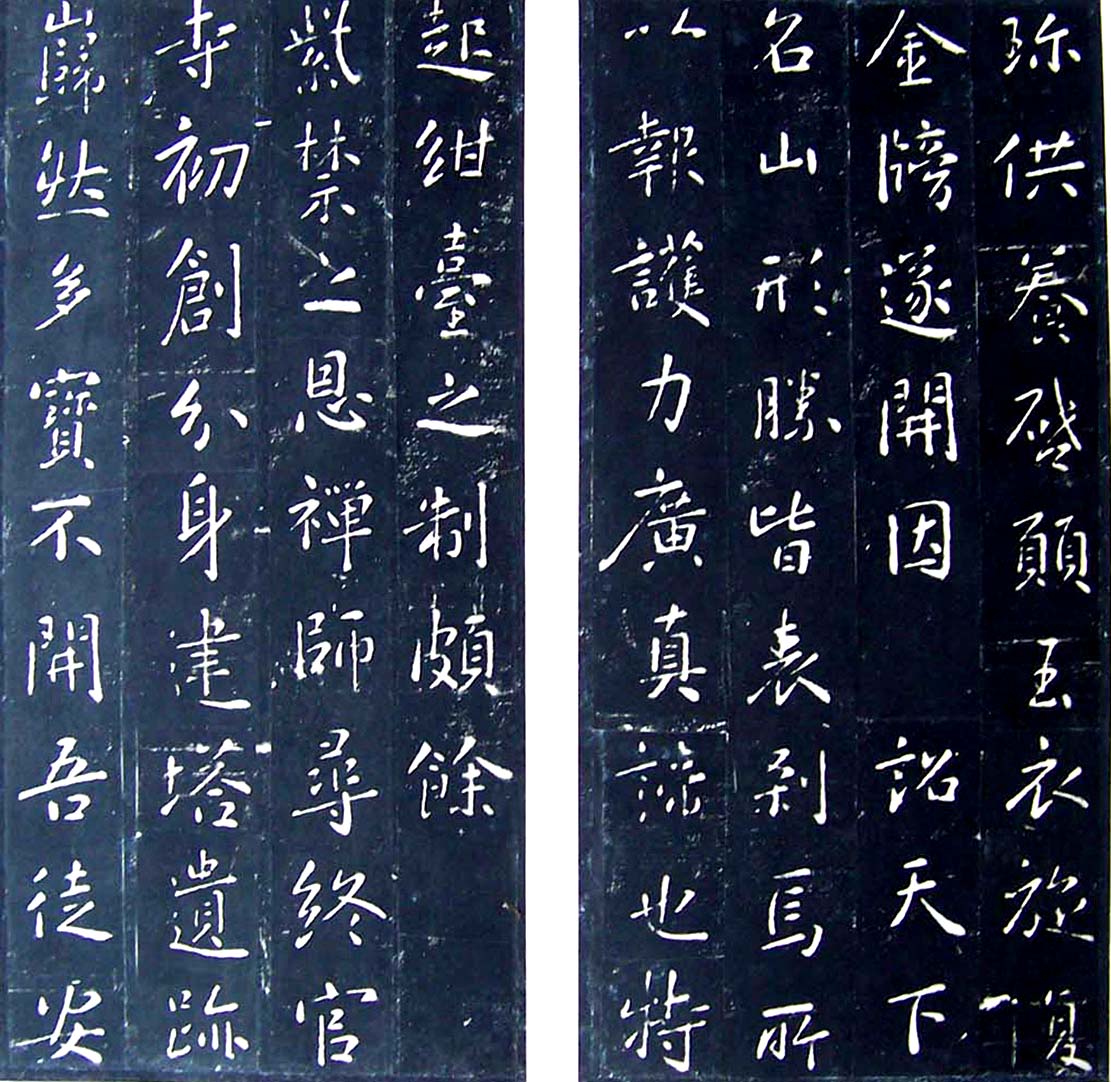 弥供養啓願玉衣旋復
金牓遂開因詔天下
名山形勝皆表刹焉所
以報護力廣真諦也特
起紺臺之制頗餘
紫禁之恩禪師尋終官
寺初創分身建塔遺跡
巋然多寶不開吾徒安